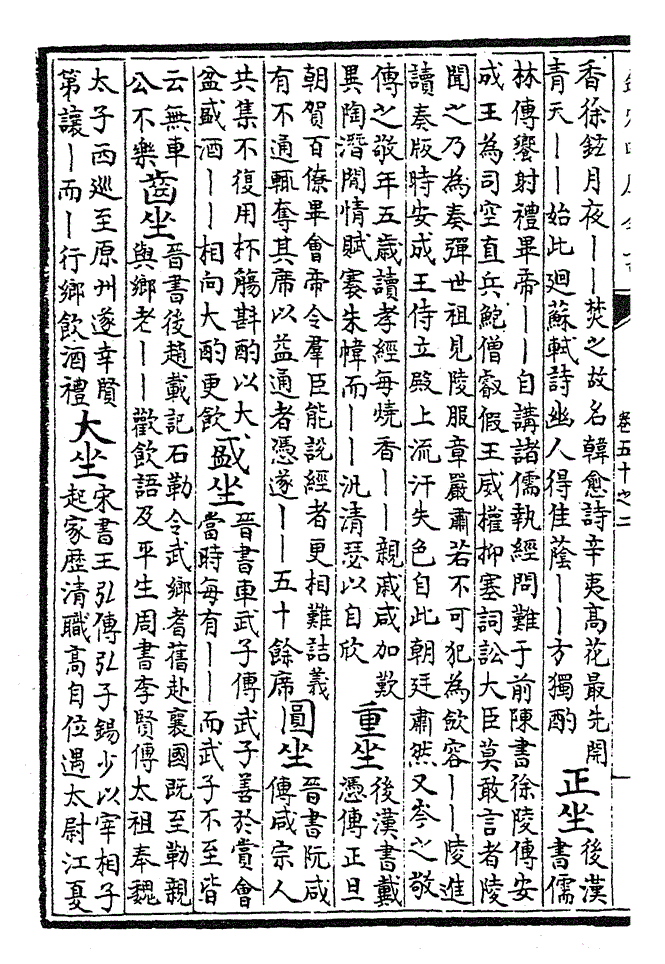 卷五十之二
香徐鉉月夜丨丨焚之故名韓愈詩辛夷高花最先開
青天丨丨始此迴蘇軾詩幽人得佳蔭丨丨方獨酌
正坐
後漢
書儒
林傳饗射禮畢帝丨丨自講諸儒執經問難于前陳書徐陵傳安
成王為司空直兵鮑僧叡假王威權抑塞詞訟大臣莫敢言者陵
聞之乃為奏彈世祖見陵服章嚴肅若不可犯為斂容丨丨陵進
讀奏版時安成王侍立殿上流汗失色自此朝廷肅然又岑之敬
傳之敬年五歲讀孝經每燒香丨丨親戚咸加歎
異陶潛閒情賦褰朱幃而丨丨汎清瑟以自欣
重坐
後漢書戴
憑傳正旦
朝賀百僚畢會帝令羣臣能說經者更相難詰義
有不通輒奪其席以益通者憑遂丨丨五十餘席
圓坐
晉書阮咸
傳咸宗人
共集不復用杯觴斟酌以大
盆盛酒丨丨相向大酌更飲
盛坐
晉書車武子傳武子善於賞會
當時每有丨丨而武子不至皆
云無車
公不樂
齒坐
晉書後趙載記石勒令武鄉耆舊赴襄國既至勒親
與鄉老丨丨歡飲語及平生周書李賢傳太祖奉魏
太子西巡至原州遂幸賢
第讓丨而丨行鄉飲酒禮
大坐
宋書王弘傳弘子錫少以宰相子
起家歷清職高自位遇太尉江夏